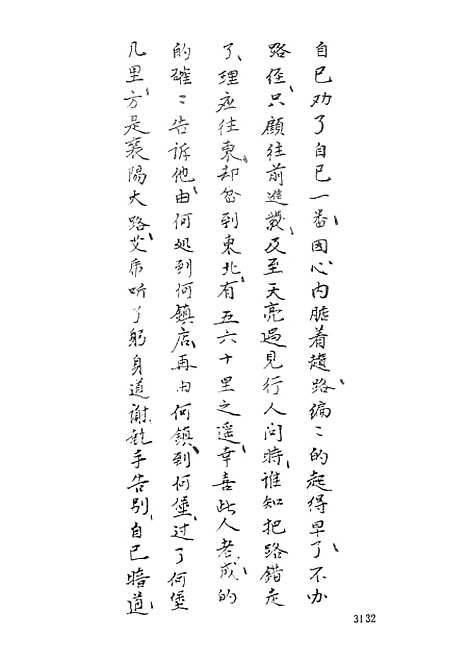 自已劝了自已一番、因心内惦着趱路、编〻的起得早了、不办
路径、只顾往前進叢、及至天亮遇見行人问時、谁知把路錯走
了、理应往東、却岔到東北、有五六十里之遥、幸喜此人老成、的
的確〻告訴他、由何処到何鎮店、再由何鎮到何堡、过了何堡
几里、方是襄陽大路、艾虎听了躬身道謝、執手告别、自已暗道、
3132